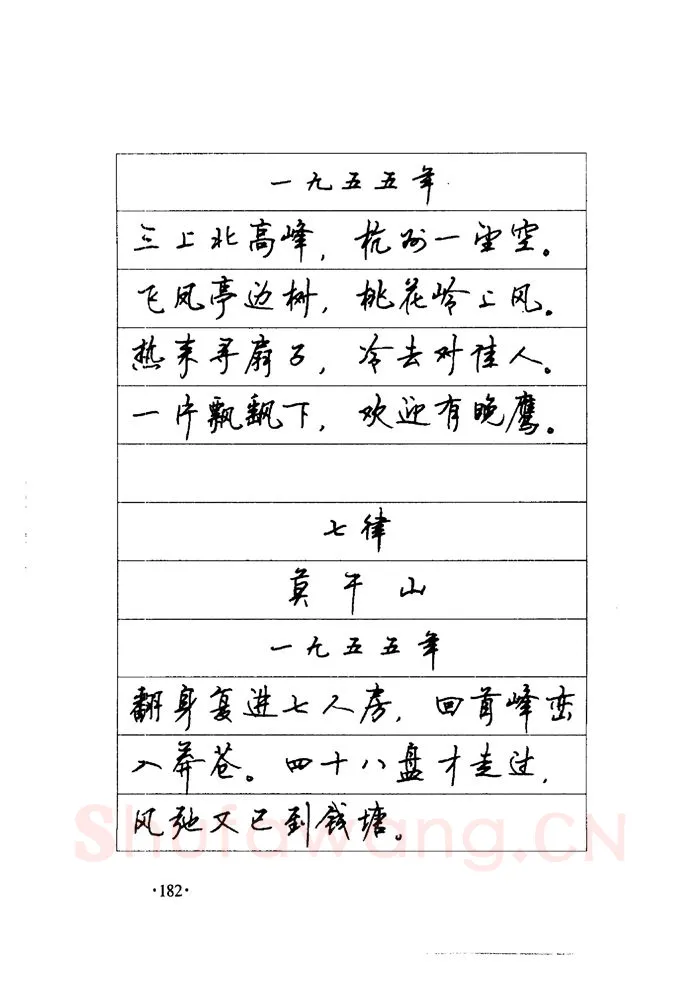 一九五五年
三上北高峰，杭州一望空。
飞凤亭边树，桃花岭上风。
热来寻扇子，冷去对佳人。
一片飘飖下，欢迎有晚鹰。
七律
莫干山
一九五五年
翻身复进七人房，回首峰峦
入莽苍。四十八盘才走过，
风驰又已到钱塘。
Shufawang.CN
·182·